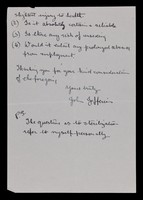 slightest injury to health
(2) Is it absolutely certain & reliable
(3) Is there any risk of
(4) Would it entail any prolonged absence
from employment
Thanking you for your kind consideration
of the foregoing,
Yours truly,
John
P.S.
The question as to sterilization
refers to myself personally.